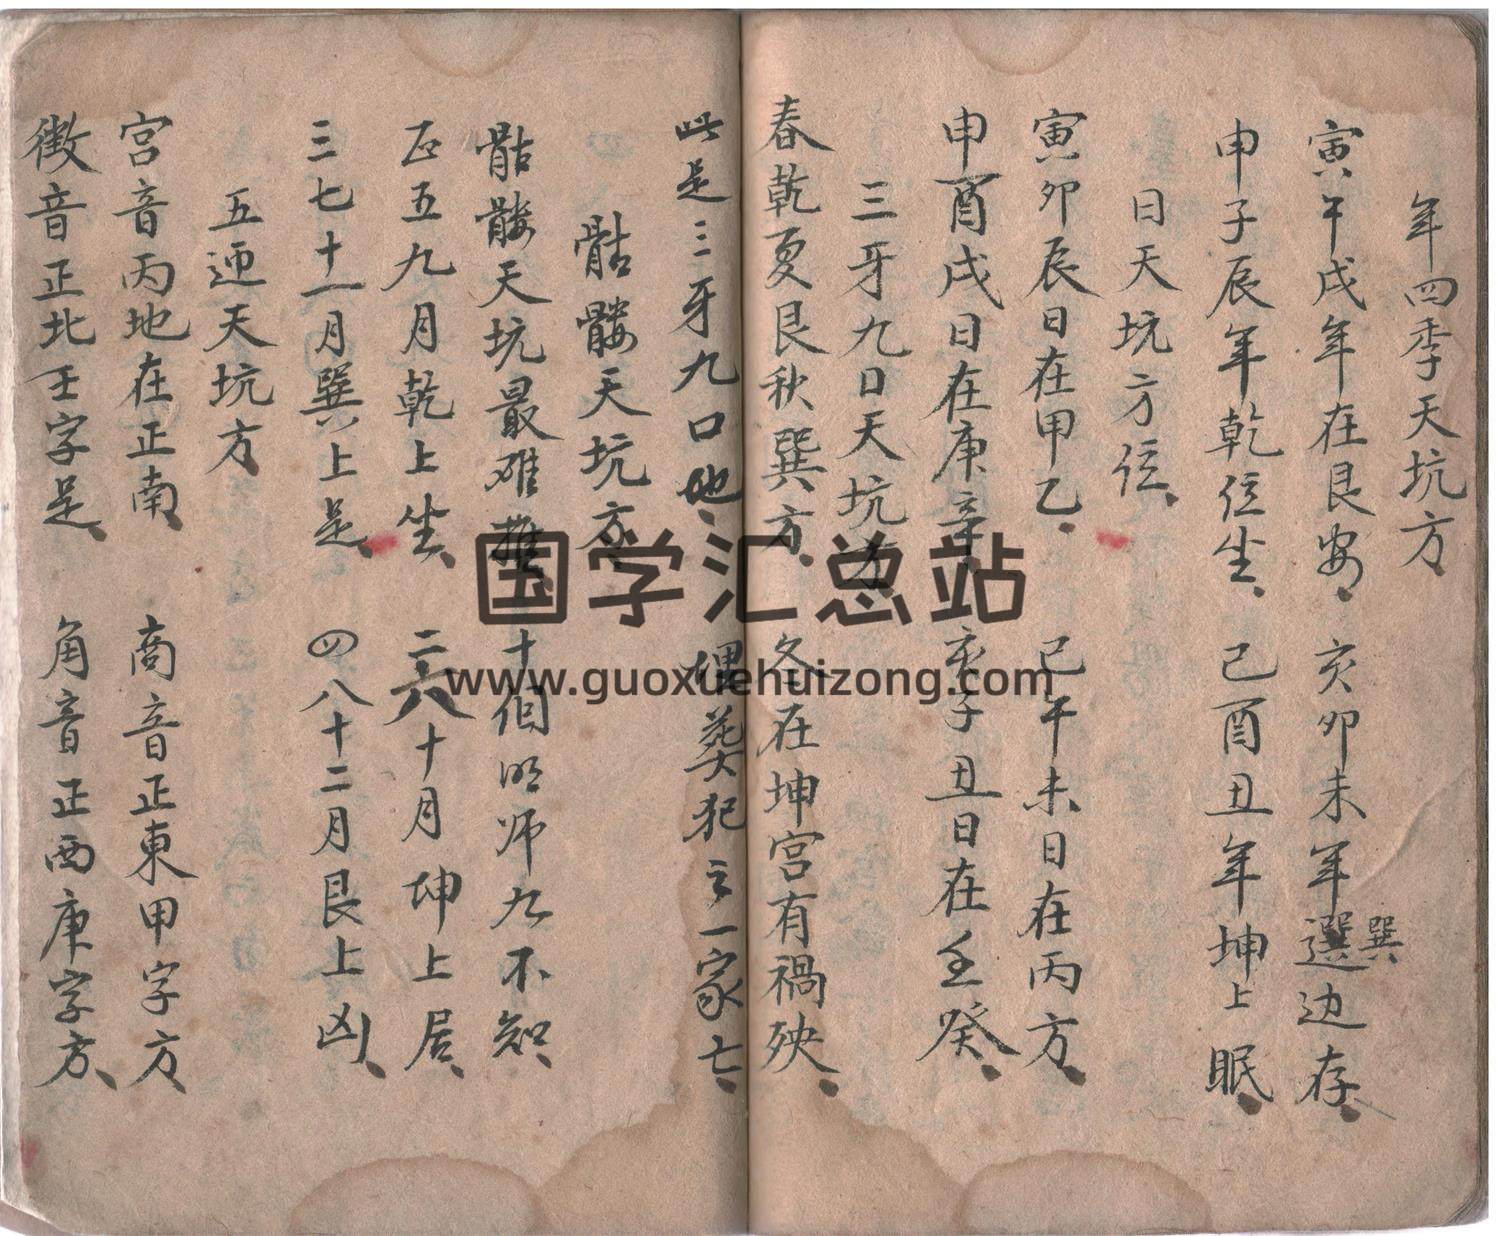 年四季天坑方
寅午戌年在艮安 亥卯未年選边存
巽
申子辰年乾位坐 巳酉丑年坤上眠
日天坑方位
寅卯辰日在甲乙 巳午未日在丙方
申酉戌日在庚辛 亥子丑日在壬癸
三牙九口天坑方
春乾夏艮秋巽方 冬在坤宫有禍殃
此是三牙九口地 埋葬犯之一家亡
骷髏天坑方
骷髏天坑最难推 十個明师九不知
正五九月乾上坐 二六十月坤上居
三七十一月巽上是 四八十二月艮上凶
五逥天坑方
宫音丙地在正南 商音正東甲字方
徵音正北壬字是 角音正西庚字方
国学汇总站
www.guoxuehuizong.com